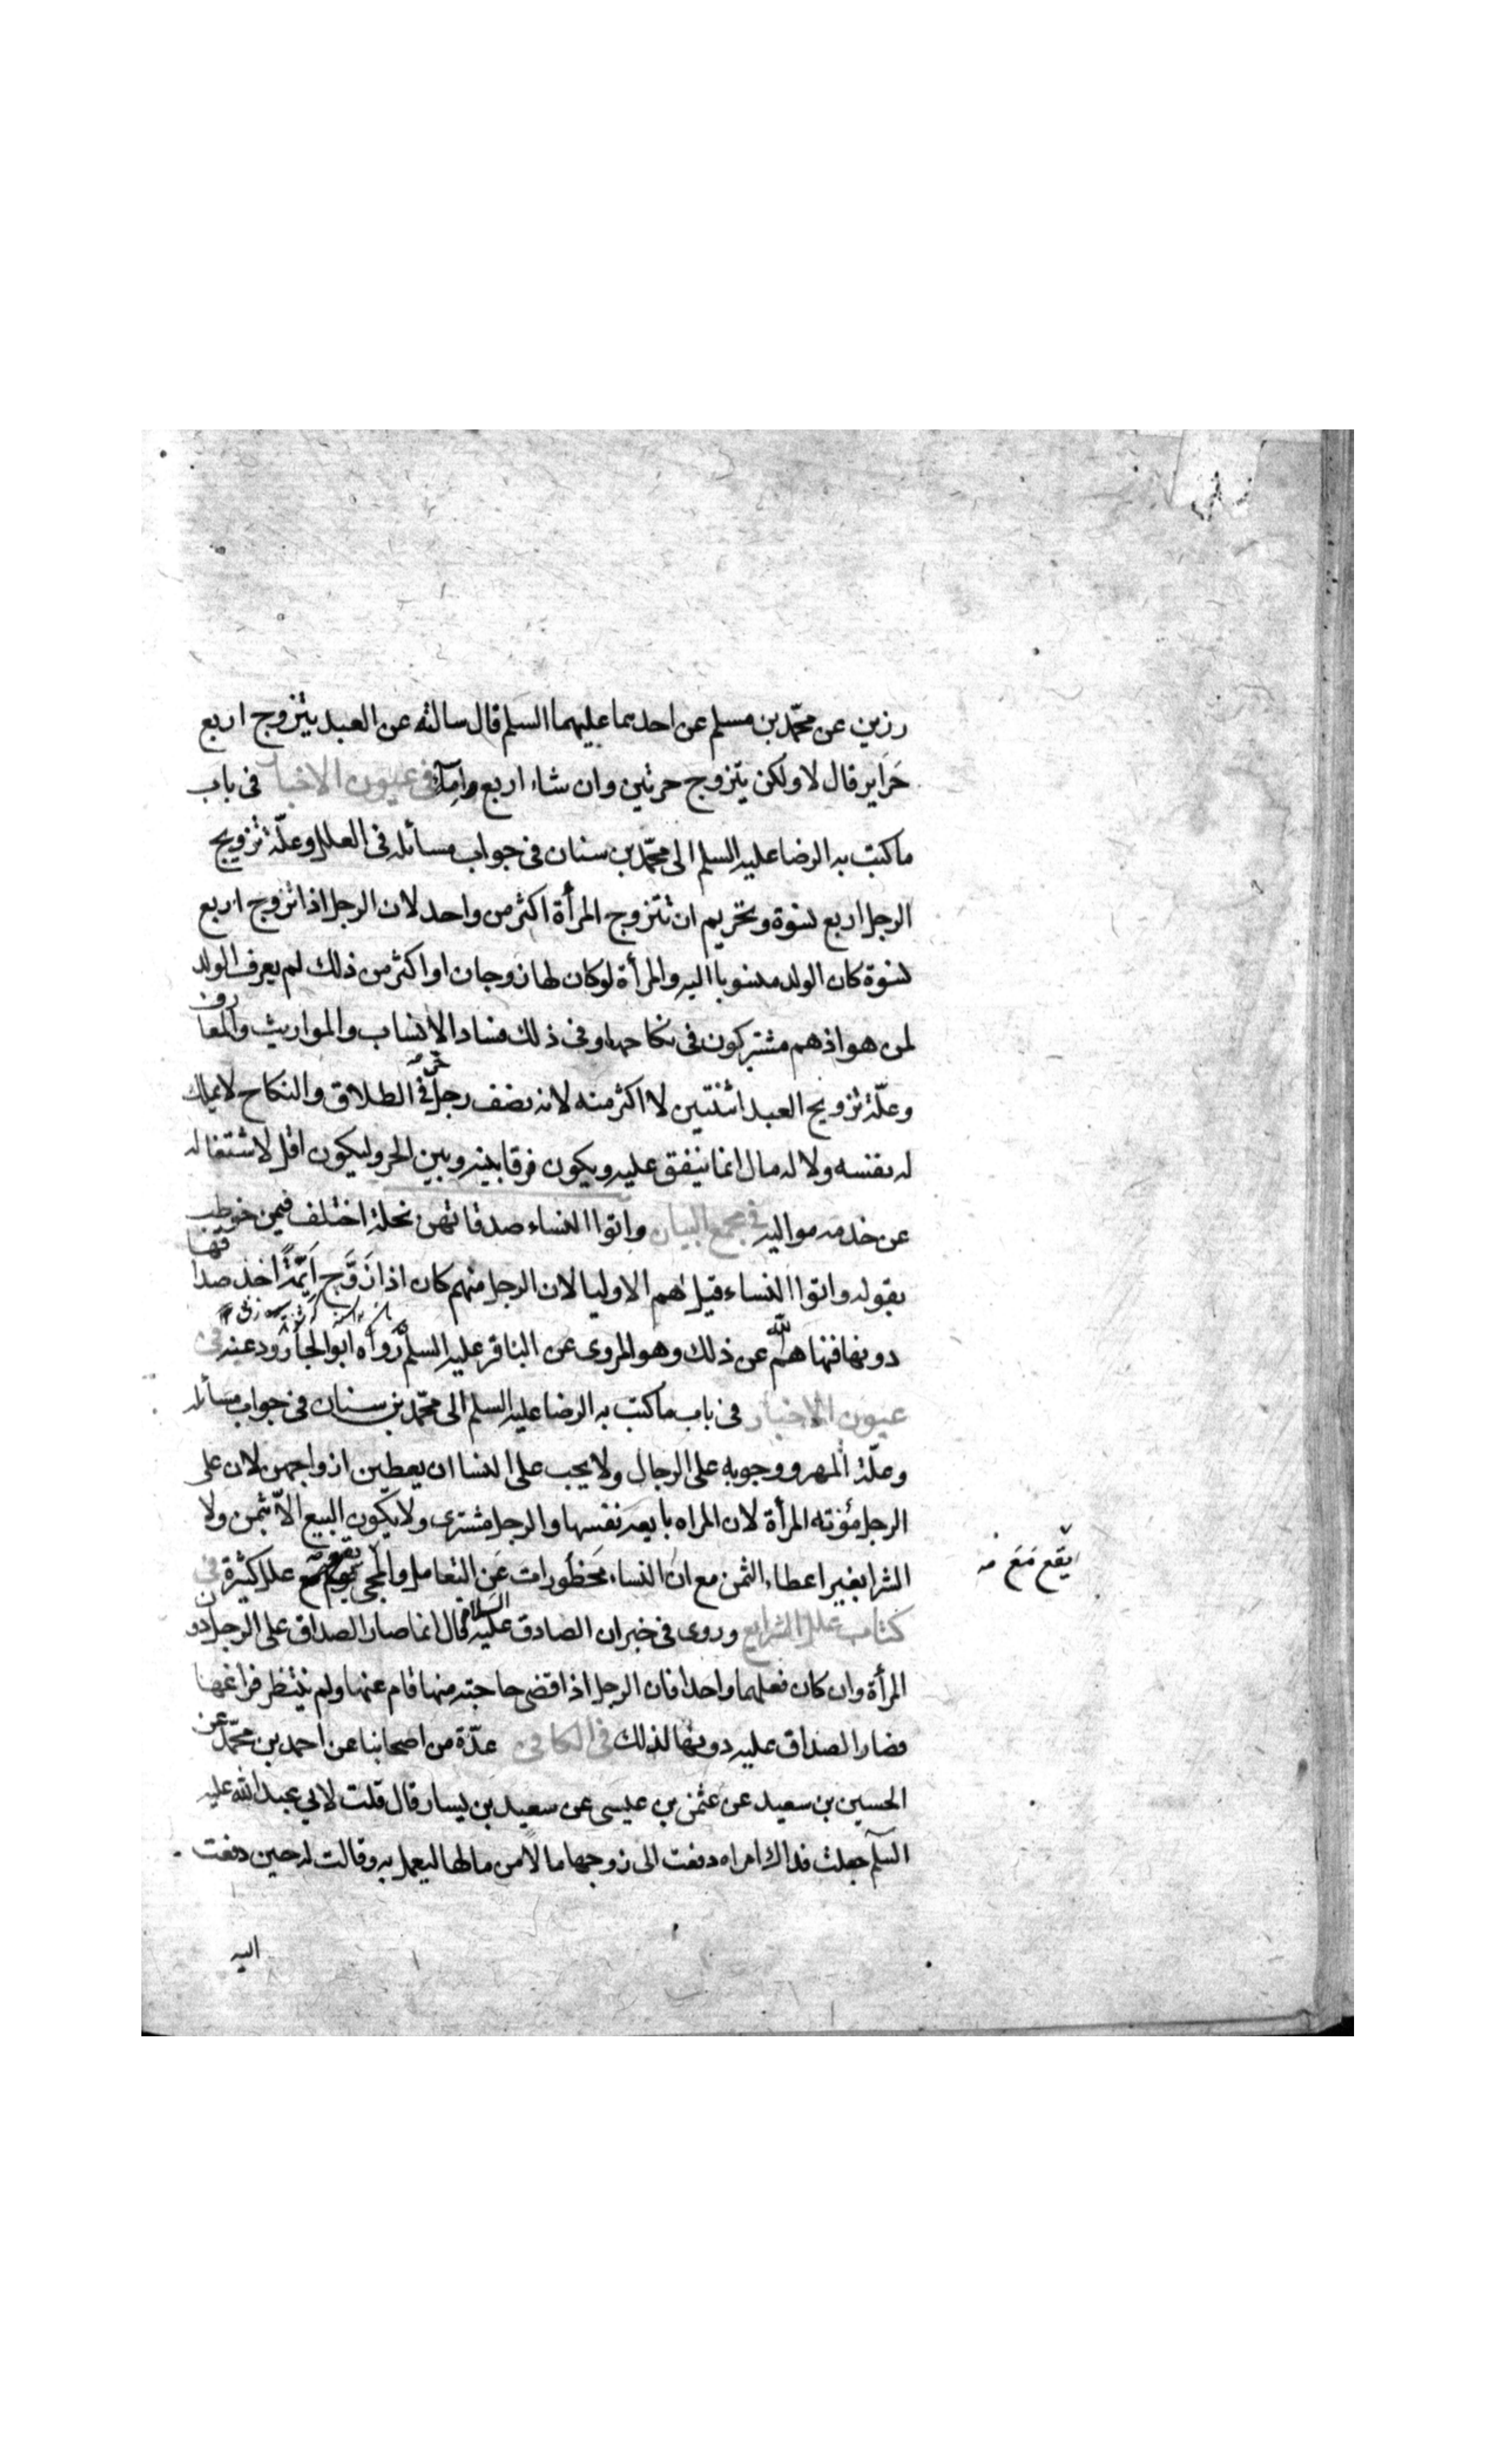 رزين عن محمّد بن مسلم عن احدهما عليهما السلم قال سالته عن العبد يتزوج اربع
حَراير قال لا ولكن يتزوج حرتين وان شاء اربع وامآء فى عيون الاخبار فى باب
ما كتب به الرضا عليه السلم الى محمّد بن سنان فى جواب مسائله فى العلل وعلّة تزويج
الرجل اربع نسوة وتحريم ان تتزوج المرأة اكثر من واحد لان الرجل اذا تزوج اربع
نسوة كان الولد منسوبا اليه والمرأة لو كان لها زوجان او اكثر من ذلك لم يعرف الولد
لمن هو اذ هم مشتركون فى نكاحها وفى ذلك فساد الانساب والمواريث والمعارف
وعلّة تزويج العبد اثنتين لا اكثر منه لانه نصف رجل حرّ فى الطلاق والنكاح لا يملك
له نفسه ولا له مال انما ينفق عليه ويكون فرقا بينه وبين الحر وليكون اقل لاشتغاله
عن خدمه مواليه فى مجمع البيان واتوا النساء صدقاتهن نحلة اختلف فيمن خوطب
بقوله واتوا النساء قيل هم الاوليا لان الرجل منهم كان اذا زَوَّج اَيّمةً اخذ صداقها
دونها فنهاهم الله عن ذلك وهو المروى عن الباقر عليه السلم رواه ابو الجارود عنه فى
عيون الاخبار فى باب ما كتب به الرضا عليه السلم الى محمّد بن سنان فى جواب مسائله
وعلّة المهر ووجوبه على الرجال ولا يجب على النسا ان يعطين ازواجهن لان على
الرجل مؤنته المرأة لان المراه بايعه نفسها والرجل مشترى ولا يكون البيع الاّ بثمن ولا
الشرا بغير اعطاء الثمن مع ان النساء محظورات عن التعامل والمجى مع علل كثيرة فى
كتاب علل الشرايع وروى فى خبران الصادق عليه السلام قال انما صار الصداق على الرجل دون
المرأة وان كان فعلهما واحدا فان الرجل اذا قضى حاجته منها قام عنها ولم ينتظر فراغها
فصار الصداق عليه دونها لذلك فى الكافى عدّة من اصحابنا عن احمد بن محمّد عن
الحسين بن سعيد عن عثمن بن عيسى عن سعيد بن يسار قال قلت لابي عبد الله عليه
السلم جعلت فداك امراه دفعت الى زوجها مالا من مالها ليعمل به وقالت له حين دفعت
اليه